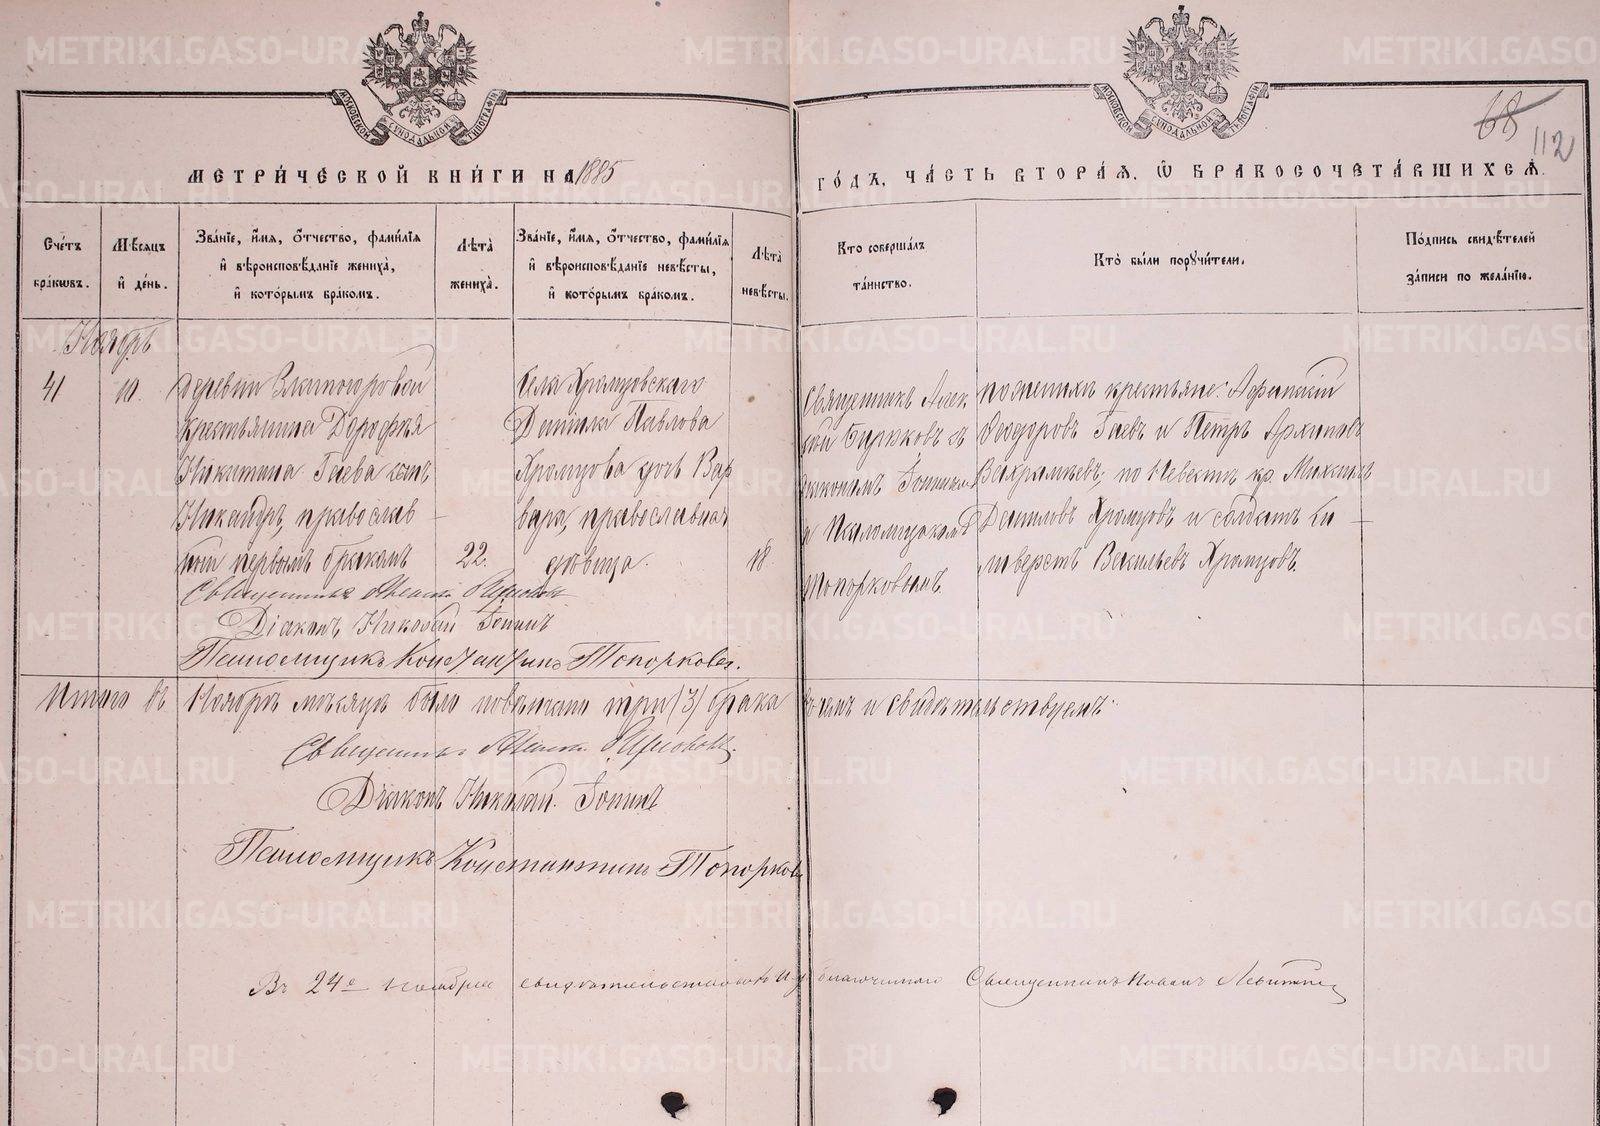 МОСКОВСКОЙ СѴНОДАЛЬНОЙ ТИПОГРАФІИ
МОСКОВСКОЙ СѴНОДАЛЬНОЙ ТИПОГРАФІИ
68
112
МЕТРИ́ЧЕСКОЙ КНИ́ГИ НА 1885 ГО́ДЪ, ЧА́СТЬ ВТОРА́Я, Ѡ БРАКОСОЧЕТА́ВШИХСѦ.
Сче́тъ бра́кѡвъ.
Мѣ́сяцъ и́ де́нь.
Зва́нїе, и́мя, о́тчество, фами́лїя и́ вѣроисповѣ́данїе жениха̀, и́ кото́рымъ бра́комъ.
Лѣ́та жениха̀.
Зва́нїе, и́мя, о́тчество, фами́лїя и́ вѣроисповѣ́данїе невѣ́сты, и́ кото́рымъ бра́комъ.
Лѣ́та невѣ́сты.
Кто̀ соверша́лъ та́инство.
Кто̀ бы́ли порꙋчи́тели.
По́дпись свидѣ́телей за́писи по жела́нїю.
Ноябрь
41
10.
деревни
крестьянина Дорофѣя
Никитина Гаева сынъ
Никандръ, православ
ной первымъ бракомъ
22.
села Храмцовскаго
Данила Павлова
Храмцова дочь Вар
вара, православная
дѣвица.
18.
Священникъ Алек
сѣй съ
діакономъ Іонинымъ
и Псаломщикомъ
Топорковымъ.
по женихѣ крестьяне: Афанасій
Ѳеодоровъ Гаевъ и Петръ Архиповъ
Вахрамѣевъ; по невѣстѣ кр. Михаилъ
Даниловъ Храмцовъ и солдатъ Си
ливерстъ Васильевъ Храмцовъ.
Священникъ Алексѣй
Діаконъ Николай Іонинъ
Псаломщикъ Константинъ Топорковъ.
Итого въ Ноябрѣ мѣсяцѣ было повѣнчано три (3) брака въ чемъ и свидѣтельствуемъ:
Священникъ Алексѣй
Діаконъ Николай Іонинъ
Псаломщикъ Константинъ Топорковъ
Въ 24е ноября свидѣтельствовалъ благочиннаго Священникъ Левитскій
METRIKI.GASO-URAL.RU